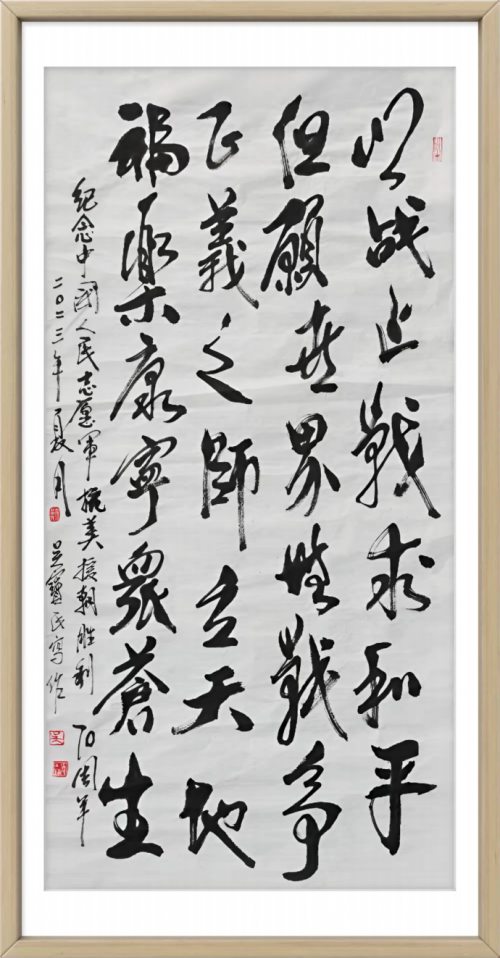 以战止戰求和平
但願世界無戰争
正義之師立天地
福樂康寧眾蒼生
紀念中國人民志愿軍抗美援朝胜利70周年
二〇二三年夏月 吴寶民寫作